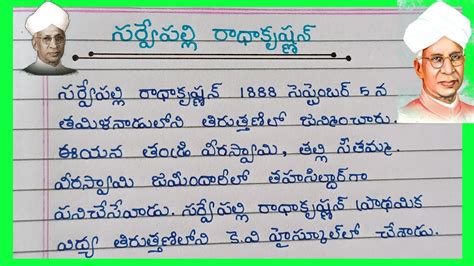 సర్వేపల్లి రాధాకృష్ణన్
సర్వేపల్లి రాధాకృష్ణన్ 1888 సెప్టెంబర్ 5 న
తమిళనాడులోని తిరుత్తణిలో జన్మించారు.
ఈయన తండ్రి వీరస్వామి, తల్లి సీతమ్మ.
వీరస్వామి జమిందారీలో తహసిల్దార్‌గా
పనిచేసేవాడు. సర్వేపల్లి రాధాకృష్ణన్ ప్రాథమిక
విద్య తిరుత్తణిలోని కె.వి హైస్కూల్‌లో చేశాడు.